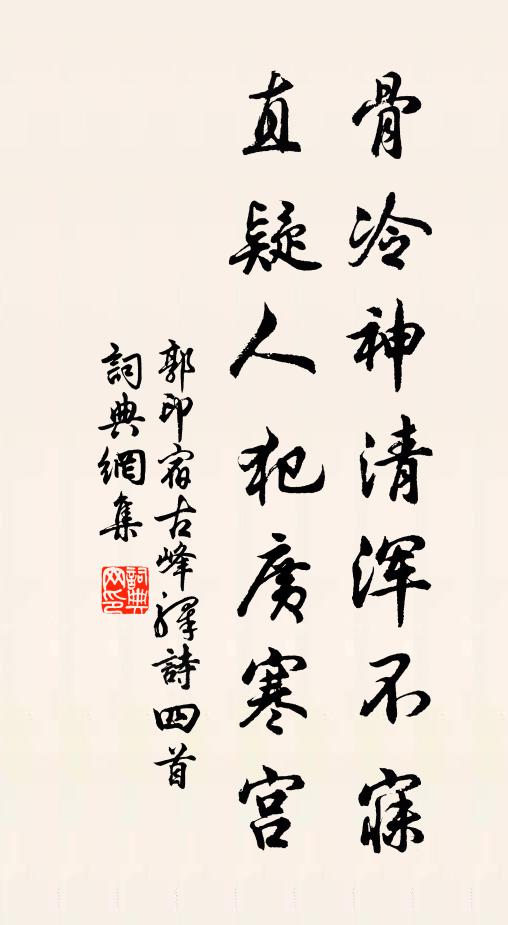 骨冷神清浑不寐
直疑人犯廣寒宫
郭印宿古峰驛詩四首
詞典網集
詞典网印